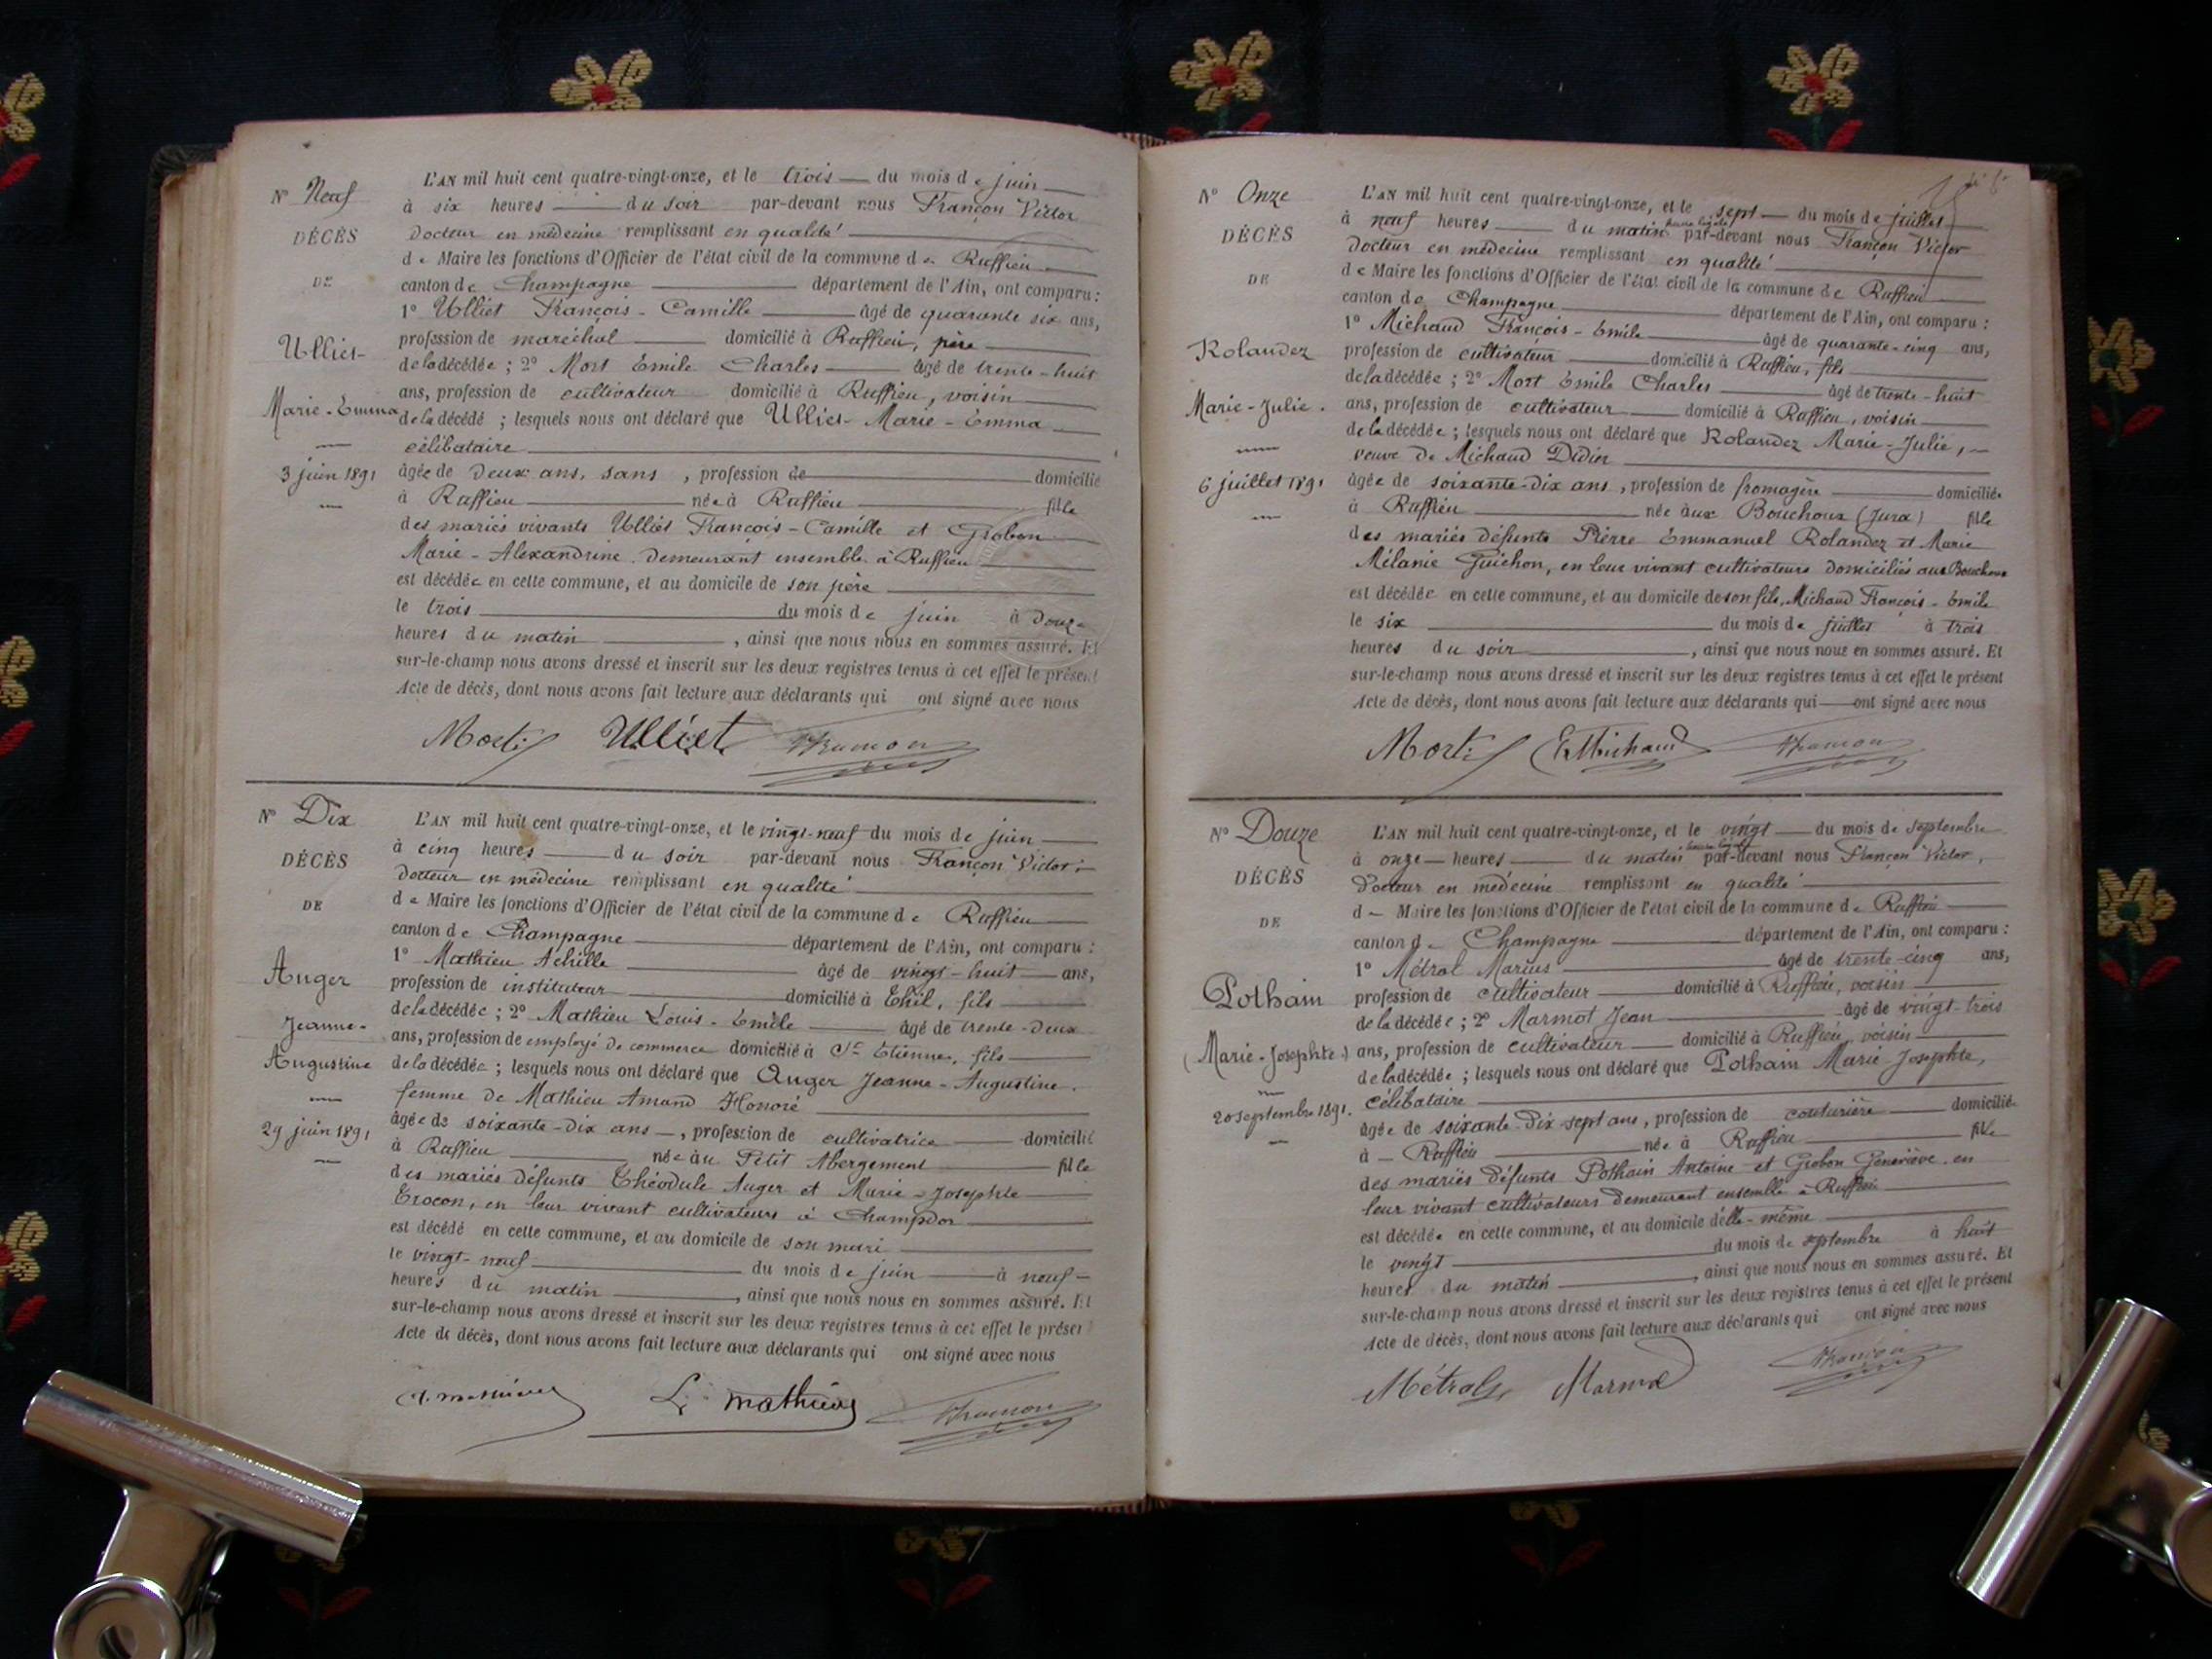 Nº Neuf
DÉCÈS
DE
Ulliet
Marie-Emma
3 juin 1891
L'AN mil huit cent quatre-vingt-onze, et le trois du mois de juin
à six heures du soir par-devant nous Françon Victor
Docteur en médecine remplissant en qualité
de Maire les fonctions d'Officier de l'état civil de la commune de Ruffieu
canton de Champagne département de l'Ain, ont comparu :
1º Ulliet François-Camille âgé de quarante six ans,
profession de maréchal domicilié à Ruffieu, père
de la décédée ; 2º Mort Emile Charles âgé de trente-huit
ans, profession de cultivateur domicilié à Ruffieu, voisin
de la décédé ; lesquels nous ont déclaré que Ulliet Marie-Emma
célibataire
âgée de deux ans, sans , profession de domicilié
à Ruffieu née à Ruffieu fille
des mariés vivants Ulliet François-Camille et Grobon
Marie-Alexandrine demeurant ensemble à Ruffieu
est décédée en cette commune, et au domicile de son père
le trois du mois de juin à douze
heures du matin , ainsi que nous nous en sommes assuré. Et
sur-le-champ nous avons dressé et inscrit sur les deux registres tenus à cet effet le présent
Acte de décès, dont nous avons fait lecture aux déclarants qui ont signé avec nous
Mort Ulliet Françon
Nº Dix
DÉCÈS
DE
Auger
Jeanne-
Augustine
29 juin 1891
L'AN mil huit cent quatre-vingt-onze, et le vingt-neuf du mois de juin
à cinq heures du soir par-devant nous Françon Victor
Docteur en médecine remplissant en qualité
de Maire les fonctions d'Officier de l'état civil de la commune de Ruffieu
canton de Champagne département de l'Ain, ont comparu :
1º Mathieu Achille âgé de vingt-huit ans,
profession de instituteur domicilié à Thil, fils
de la décédée ; 2º Mathieu Louis-Emile âgé de trente-deux
ans, profession de employé de commerce domicilié à St Etienne, fils
de la décédée ; lesquels nous ont déclaré que Auger Jeanne-Augustine.
femme de Mathieu Amand Honoré
âgée de soixante-dix ans , profession de cultivatrice domicilié
à Ruffieu née au Petit Abergement fille
des mariés défunts Théodule Auger et Marie-Josephte
Crocon, en leur vivant cultivateurs à Champdor
est décédé en cette commune, et au domicile de son mari
le vingt-neuf du mois de juin à neuf
heures du matin , ainsi que nous nous en sommes assuré. Et
sur-le-champ nous avons dressé et inscrit sur les deux registres tenus à cet effet le présent
Acte de décès, dont nous avons fait lecture aux déclarants qui ont signé avec nous
A. Mathieu L. Mathieu Françon
Nº Onze
DÉCÈS
DE
Rolandez
Marie-Julie.
6 juillet 1891
L'AN mil huit cent quatre-vingt-onze, et le sept du mois de juillet
à neuf heures du matin heure légale par-devant nous Françon Victor
Docteur en médecine remplissant en qualité
de Maire les fonctions d'Officier de l'état civil de la commune de Ruffieu
canton de Champagne département de l'Ain, ont comparu :
1º Michaud François-Emile âgé de quarante-cinq ans,
profession de cultivateur domicilié à Ruffieu, fils
de la décédée ; 2º Mort Emile Charles âgé de trente-huit
ans, profession de cultivateur domicilié à Ruffieu, voisin
de la décédée ; lesquels nous ont déclaré que Rolandez Marie-Julie,
veuve de Michaud Didier
âgée de soixante-dix ans , profession de fromagère domiciliée
à Ruffieu née aux Bouchoux (Jura) fille
des mariés défunts Pierre Emmanuel Rolandez et Marie
Mélanie Guichon, en leur vivant cultivateurs domiciliés aux Bouchoux
est décédée en cette commune, et au domicile de son fils, Michaud François-Emile
le six du mois de juillet à trois
heures du soir , ainsi que nous nous en sommes assuré. Et
sur-le-champ nous avons dressé et inscrit sur les deux registres tenus à cet effet le présent
Acte de décès, dont nous avons fait lecture aux déclarants qui ont signé avec nous
Mort E Michaud Françon
Nº Douze
DÉCÈS
DE
Pothain
(Marie-Josephte)
20 septembre 1891.
L'AN mil huit cent quatre-vingt-onze, et le vingt du mois de septembre
à onze heures du matin heure légale par-devant nous Françon Victor,
Docteur en médecine remplissant en qualité
de Maire les fonctions d'Officier de l'état civil de la commune de Ruffieu
canton de Champagne département de l'Ain, ont comparu :
1º Métral Marius âgé de trente-cinq ans,
profession de cultivateur domicilié à Ruffieu, voisin
de la décédée ; 2º Marmot Jean âgé de vingt-trois
ans, profession de cultivateur domicilié à Ruffieu, voisin
de la décédée ; lesquels nous ont déclaré que Pothain Marie Josephte,
célibataire
âgée de soixante-dix sept ans, profession de couturière domiciliée
à Ruffieu née à Ruffieu fille
des mariés défunts Pothain Antoine et Grobon Geneviève, en
leur vivant cultivateurs demeurant ensemble à Ruffieu
est décédée en cette commune, et au domicile d'elle-même
le vingt du mois de septembre à huit
heures du matin , ainsi que nous nous en sommes assuré. Et
sur-le-champ nous avons dressé et inscrit sur les deux registres tenus à cet effet le présent
Acte de décès, dont nous avons fait lecture aux déclarants qui ont signé avec nous
Métral Marmot Françon